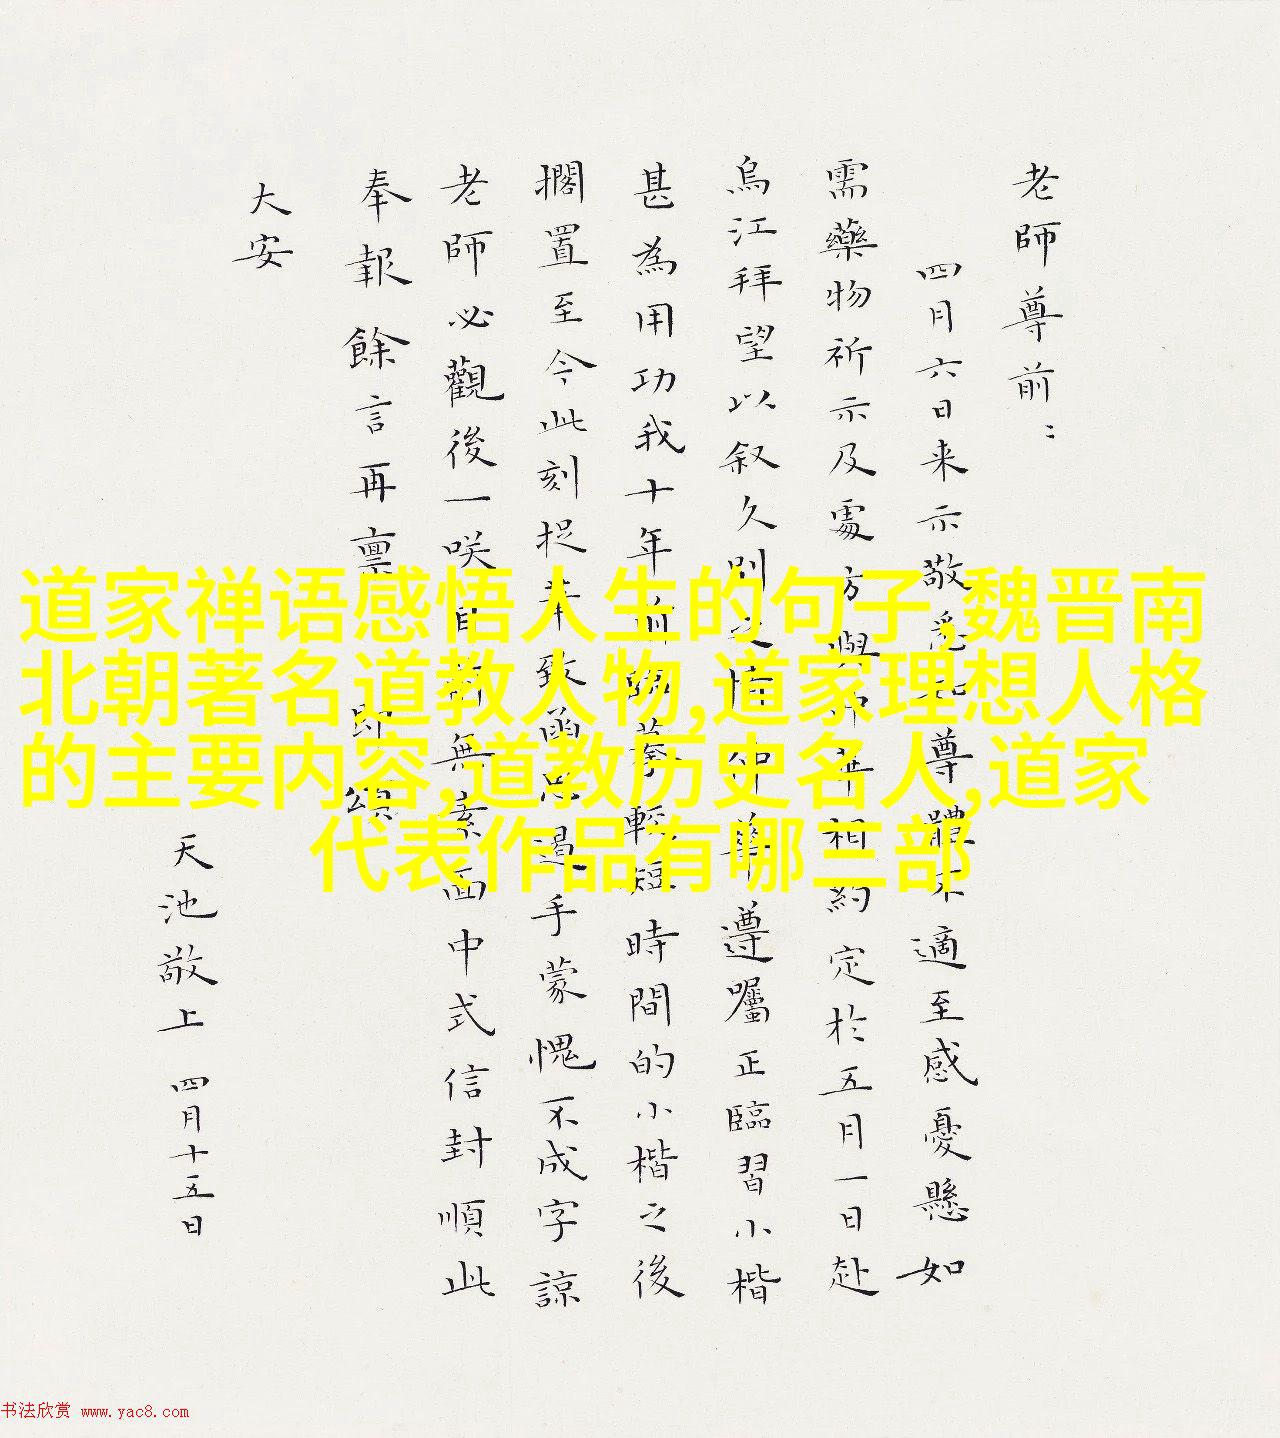 老師尊前：
四月六日来示敬悉尊體不適至感憂懸如
需藥物祈示及處方與仲華相約定於五月一日赴
烏江拜望以叙久別之情仲華遵囑正臨習小楷
甚為用功我十年前臨摹輕短時間的小楷之後
擱置至今此刻捉筆致函思遏手蒙愧不成字諒
老師必觀後一咲自無素面中式信封順此
奉報餘言再稟即頌
大安
天池敬上 四月十五日
道家禅语感悟人生的句子,魏晋南
北朝著名道教人物,道家理想人格
的主要内容,道教历史名人,道家
代表作品有哪三部
书法欣赏 www.yac8.com